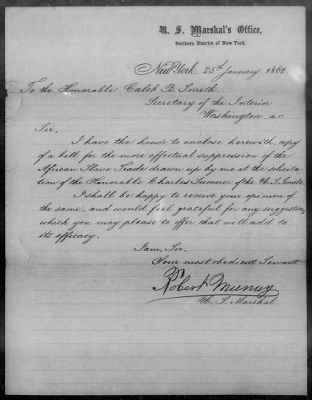 U. S. Marshal's Office,
Southern District of New York.
New York. 25th January 1862
To the Honorable Caleb B. Smith
Secretary of the Interior
Washington D.C.
Sir.
I have the honor to enclose herewith, copy
of a bill for the more effectual suppression of the
African Slave Trade drawn up by me at the solicita
tion of the Honorable Charles Sumner of the U. S. Senate.
I shall be happy to receive your opinion of
the same, and would feel grateful for any suggestion
which you may please to offer that will add to
its efficacy.
I am, Sir,
Your most obedient Servant
Robert Murray
U. S. Marshal.